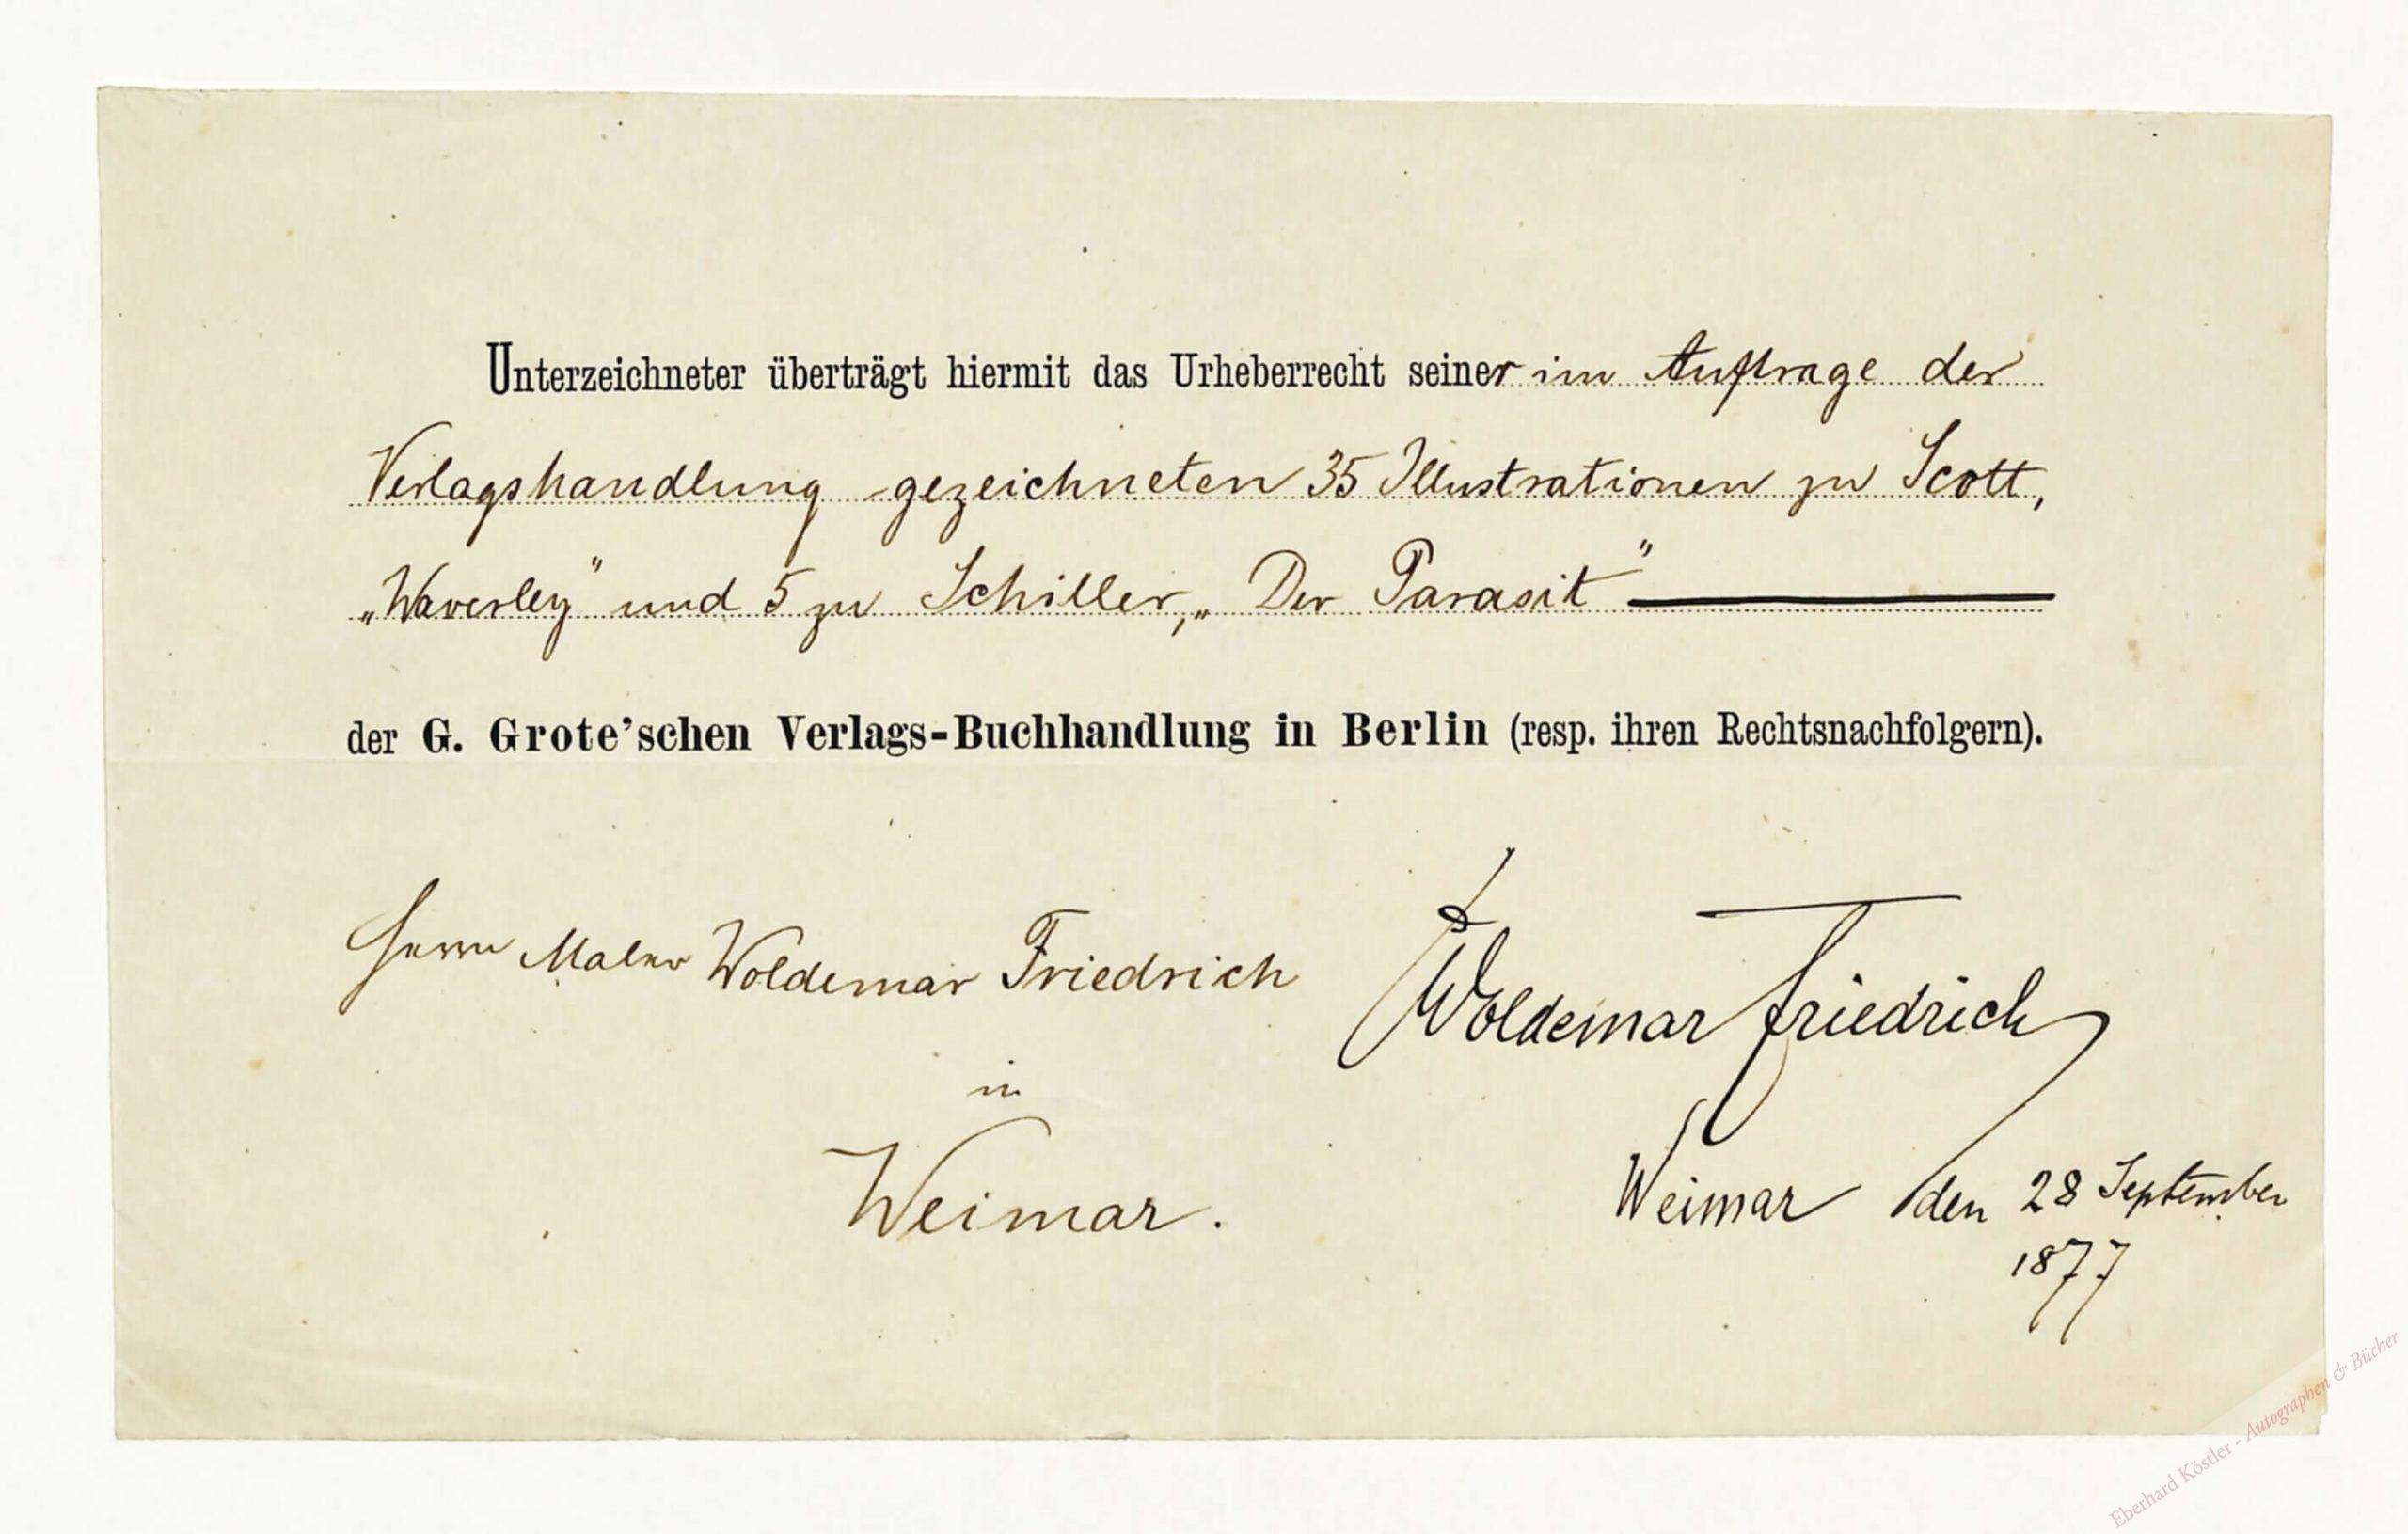 Unterzeichneter überträgt hiermit das Urheberrecht seiner im Auftrage der
Verlagshandlung gezeichneten 35 Illustrationen zu Scott,
„Waverley" und 5 zu Schiller, „Der Parasit"
der G. Grote'schen Verlags-Buchhandlung in Berlin (resp. ihren Rechtsnachfolgern).
Herrn Maler Woldemar Friedrich
in
Weimar.
Woldemar Friedrich
Weimar den 28 September
1877
Eberhard Köstler - Autographen & Bücher